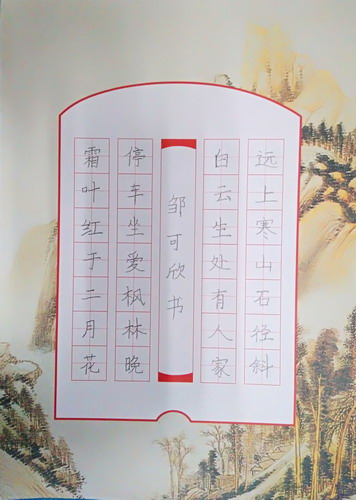 远上寒山石径斜
白云生处有人家
邹可欣书
停车坐爱枫林晚
霜叶红于二月花